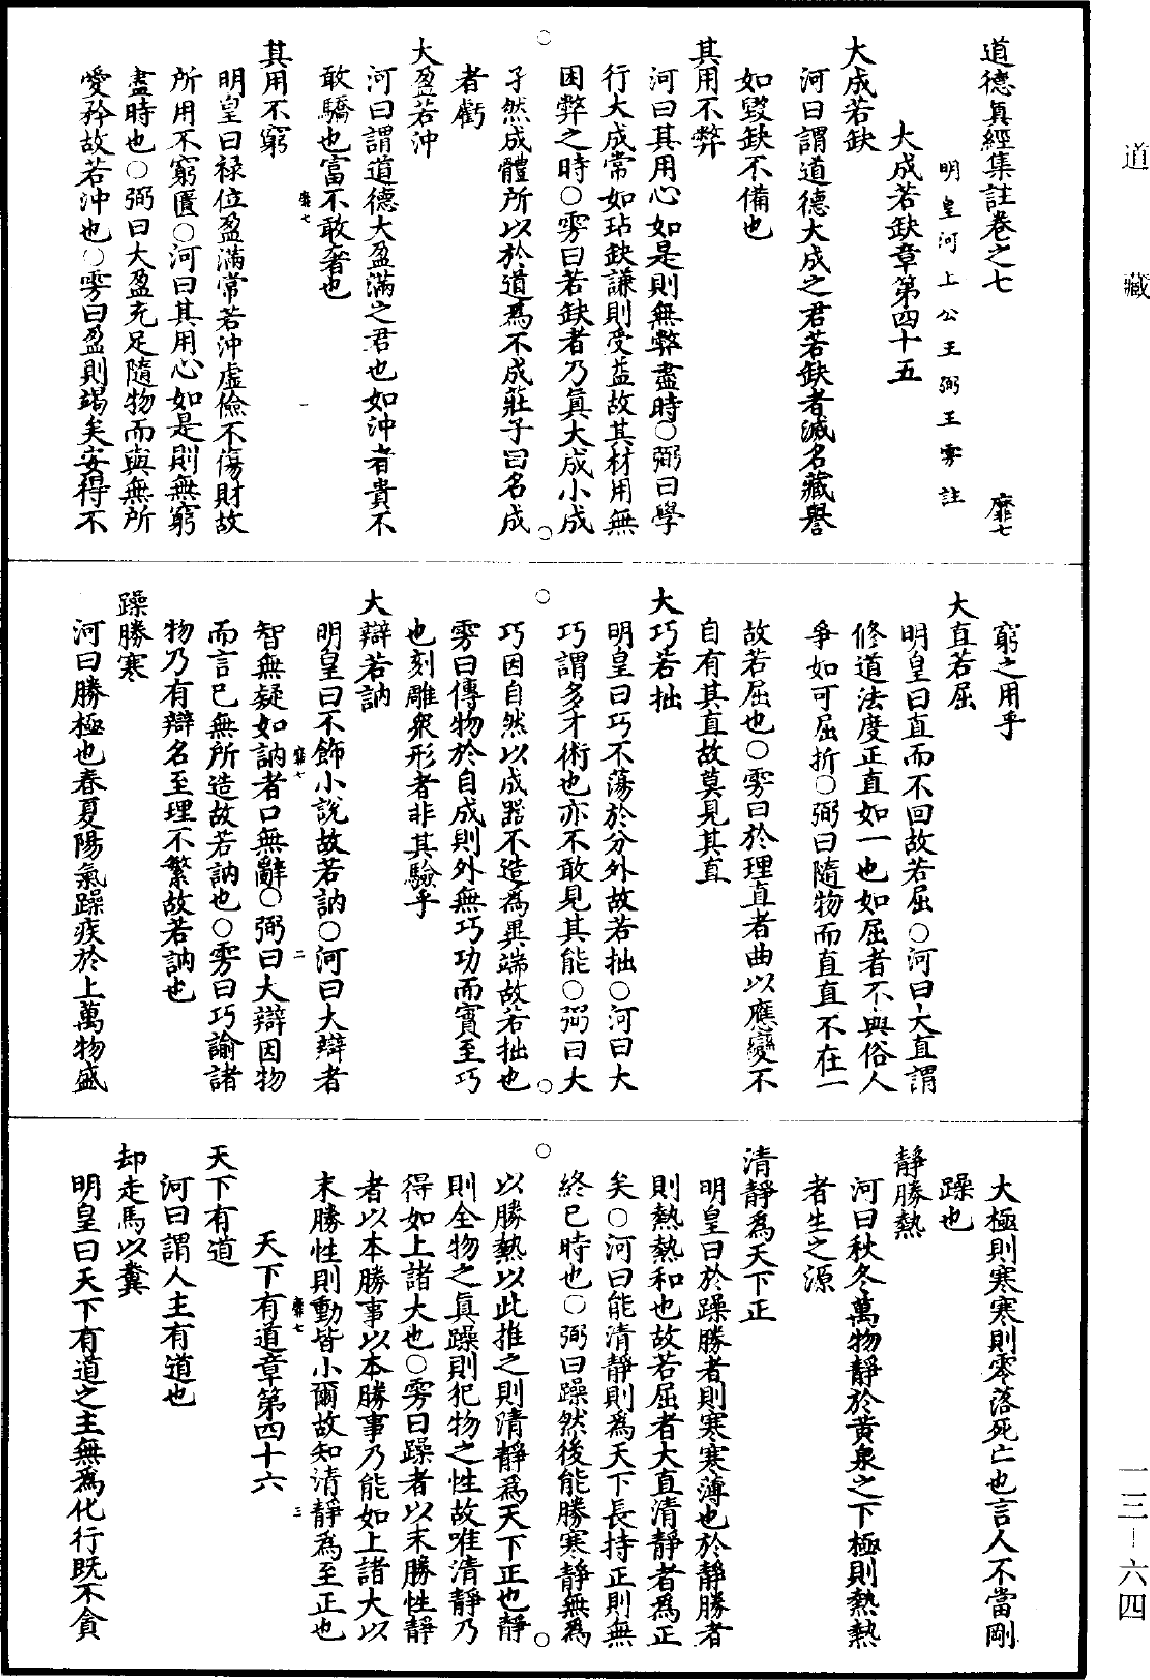 道藏
一三—六四
道德眞經集註卷之七
靡七
明皇河上公王弼王雱註
大成若缺章第四十五
大成若缺
河曰謂道德大成之君若缺者滅名藏譽
如毀缺不備也
其用不弊
河曰其用心如是則無弊盡時○弼曰學
行大成常如玷缺謙則受益故其材用無
困弊之時○雱曰若缺者乃眞大成小成
孑然成體所以於道爲不成莊子曰名成
者虧
大盈若沖
河曰謂道德大盈滿之君也如沖者貴不
敢驕也富不敢奢也
靡七
一
其用不窮
明皇曰祿位盈滿常若沖虛儉不傷財故
所用不窮匱○河曰其用心如是則無窮
盡時也○弼曰大盈充足隨物而與無所
愛矜故若沖也○雱曰盈則竭矣安得不
窮之用乎
大直若屈
明皇曰直而不回故若屈○河曰大直謂
修道法度正直如一也如屈者不與俗人
爭如可屈折○弼曰隨物而直直不在一
故若屈也○雱曰於理直者曲以應變不
自有其直故莫見其直
大巧若拙
明皇曰巧不蕩於分外故若拙○河曰大
巧謂多才術也亦不敢見其能○弼曰大
巧因自然以成器不造爲異端故若拙也
雱曰傳物於自成則外無巧功而實至巧
也刻雕衆形者非其驗乎
大辯若訥
明皇曰不飾小說故若訥○河曰大辯者
靡七
二
智無疑如訥者口無辭○弼曰大辯因物
而言己無所造故若訥也○雱曰巧諭諸
物乃有辯名至理不繁故若訥也
躁勝寒
河曰勝極也春夏陽氣躁疾於上萬物盛
大極則寒寒則零落死亡也言人不當剛
躁也
靜勝熱
河曰秋冬萬物靜於黃泉之下極則熱熱
者生之源
清靜爲天下正
明皇曰於躁勝者則寒寒薄也於靜勝者
則熱熱和也故若屈者大直清靜者爲正
矣○河曰能清靜則爲天下長持正則無
終已時也○弼曰躁然後能勝寒靜無爲
以勝熱以此推之則清靜爲天下正也靜
則全物之眞躁則犯物之性故唯清靜乃
得如上諸大也○雱曰躁者以末勝性靜
者以本勝事以本勝事乃能如上諸大以
末勝性則動皆小爾故知清靜爲至正也
靡七
三
天下有道章第四十六
天下有道
河曰謂人主有道也
却走馬以糞
明皇曰天下有道之主無爲化行既不貪